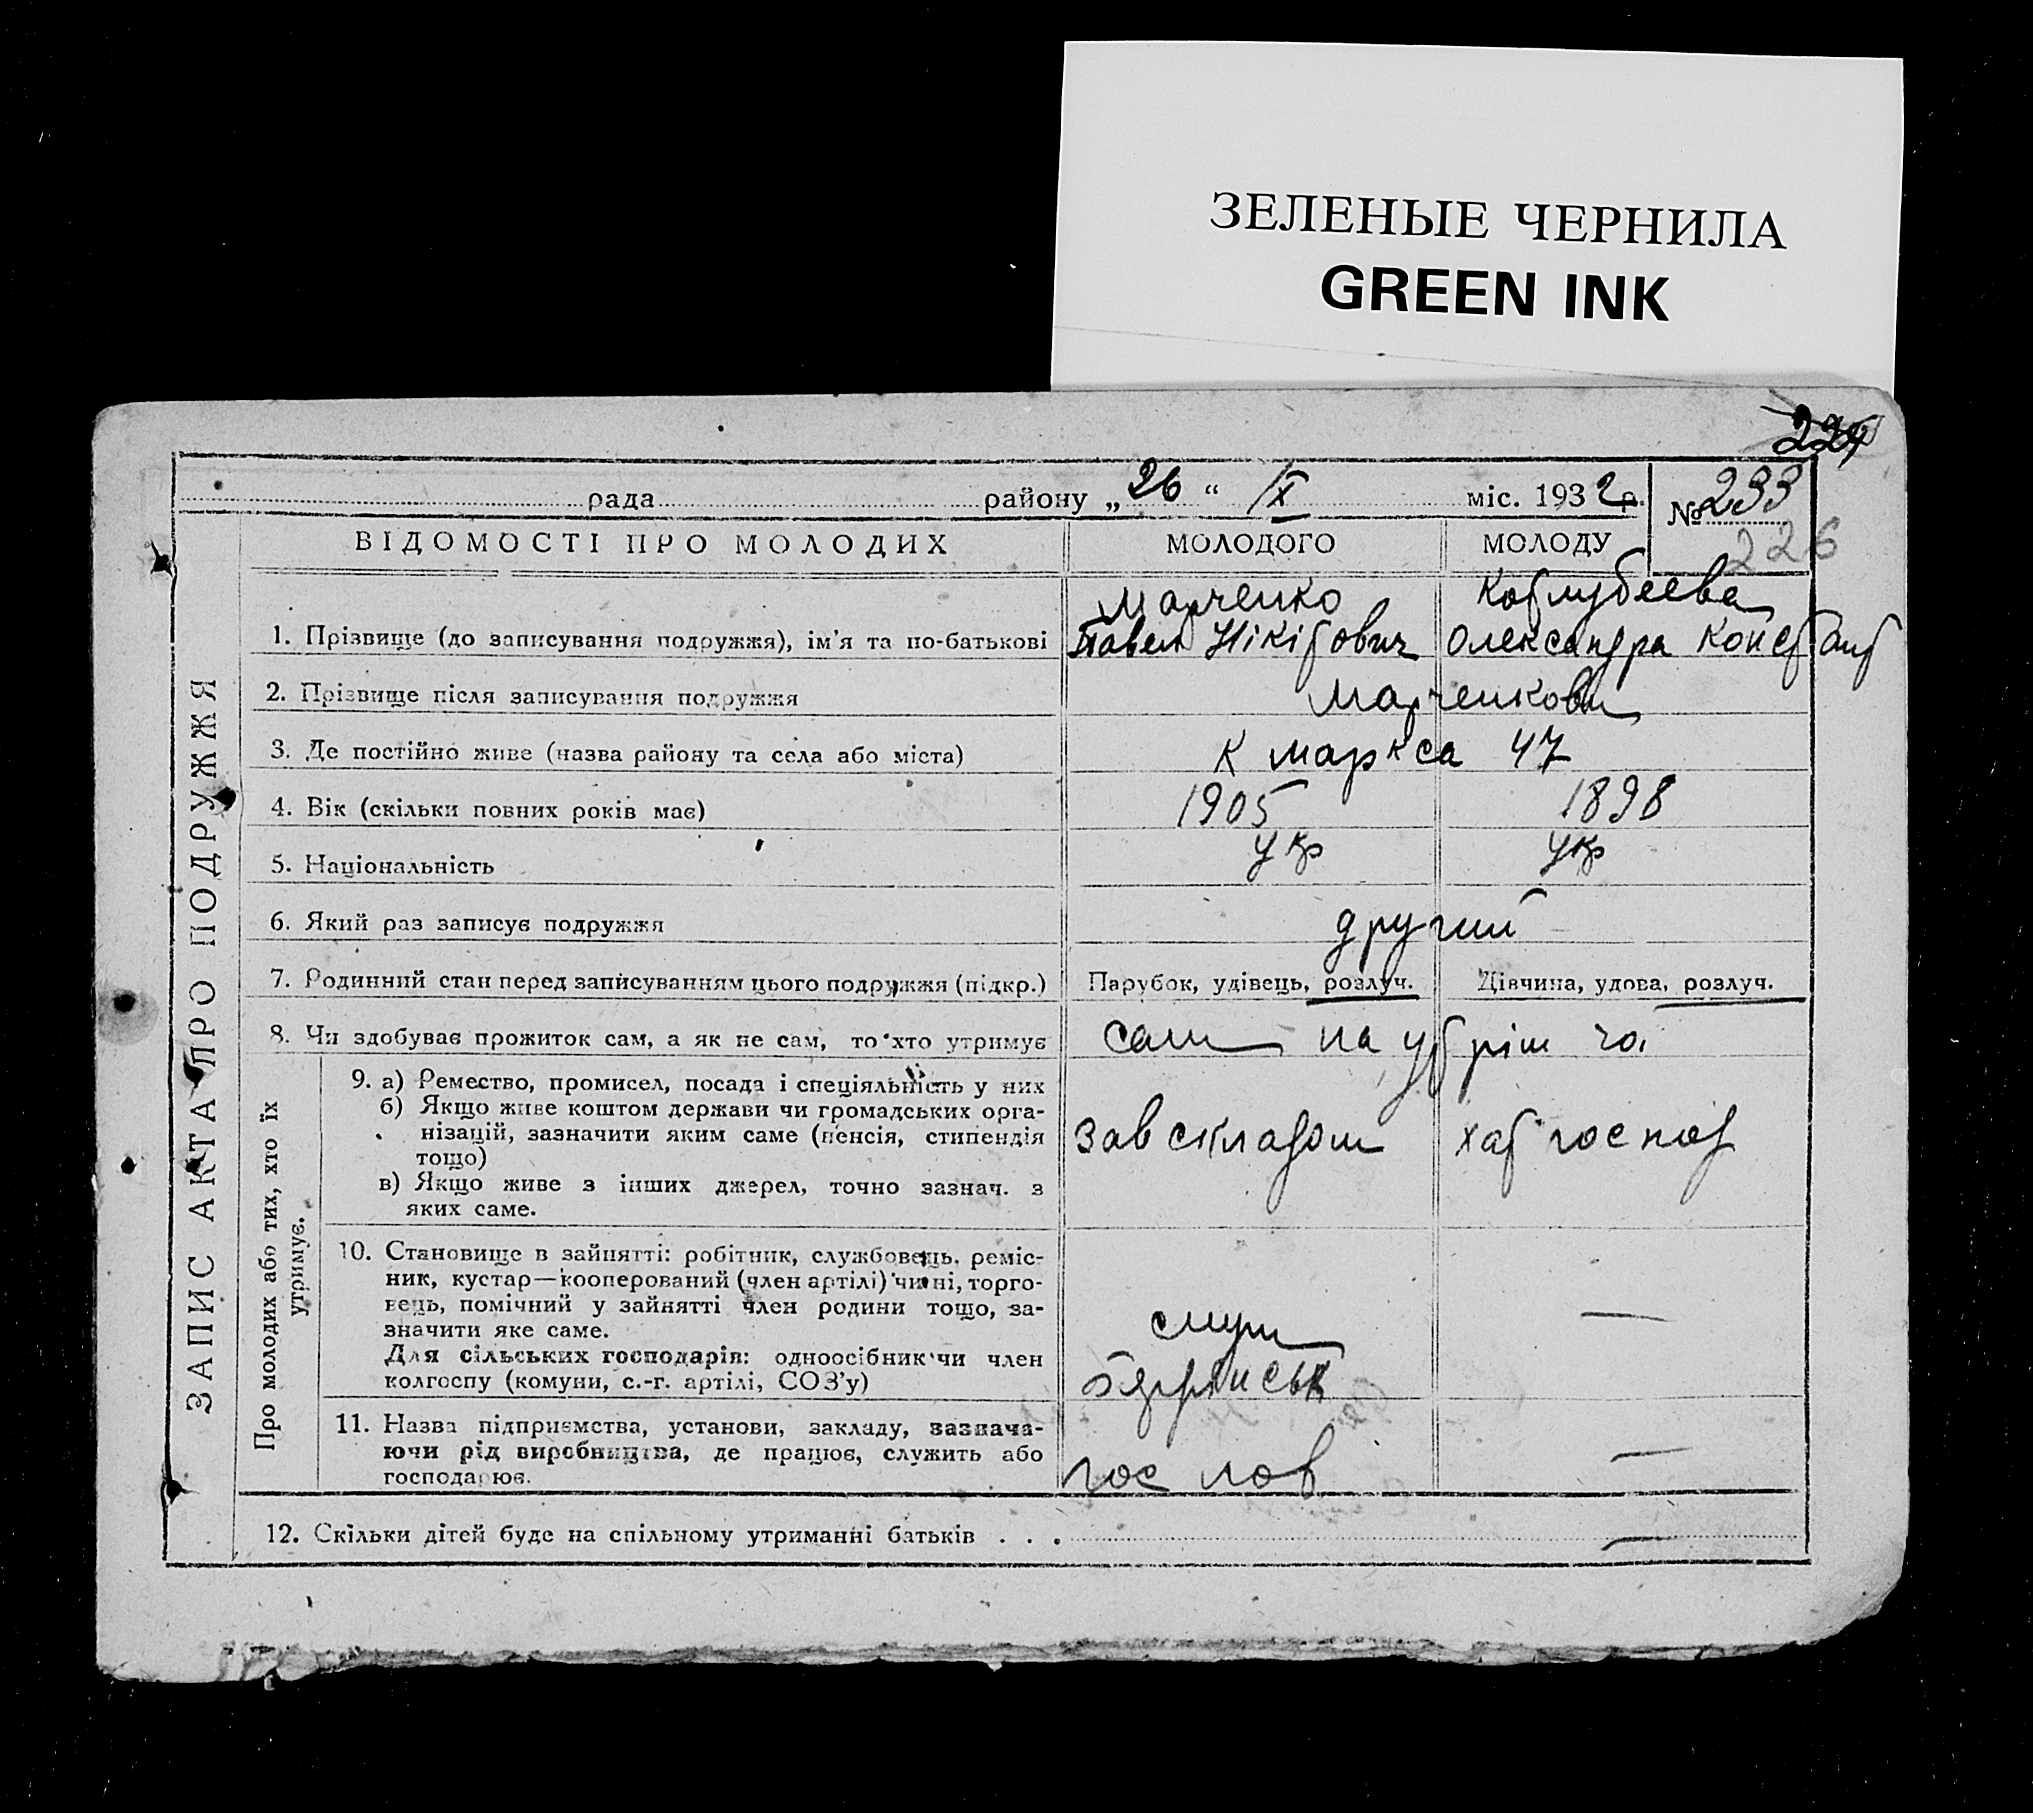 ЗЕЛЕНЫЕ ЧЕРНИЛА
GREEN INK
рада району „26“ IX міс. 1932 р.
№ 233
226
ЗАПИС АКТА ПРО ПОДРУЖЖЯ
ВІДОМОСТІ ПРО МОЛОДИХ МОЛОДОГО МОЛОДУ
Марченко
1. Прізвище (до записування подружжя), ім'я та по-батькові Павел Нікітович Олександра Констант
2. Прізвище після записування подружжя Марченкови
3. Де постійно живе (назва району та села або міста) К маркса 47
4. Вік (скільки повних років має) 1905 1898
5. Національність укр укр
6. Який раз записує подружжя другий
7. Родинний стан перед записуванням цього подружжя (підкр.) Парубок, удівець, розлуч. Дівчина, удова, розлуч.
8. Чи здобуває прожиток сам, а як не сам, то хто утримує сам на утрім чол
Про молодих або тих, хто їх
утримує.
9. а) Ремество, промисел, посада і спеціяльність у них
б) Якщо живе коштом держави чи громадських орга-
нізацій, зазначити яким саме (пенсія, стипендія
тощо)
зав складом хат господ
в) Якщо живе з інших джерел, точно зазнач. з
яких саме.
10. Становище в зайнятті: робітник, службовець, реміс-
ник, кустар—кооперований (член артілі) чи ні, торго-
вець, помічний у зайнятті член родини тощо, за-
значити яке саме.
Для сільських господарів: одноосібник чи член
колгоспу (комуни, с.-г. артілі, СОЗ'у)
—
11. Назва підприємства, установи, закладу, зазнача-
ючи рід виробництва, де працює, служить або
господарює.
—
12. Скільки дітей буде на спільному утриманні батьків . . . —